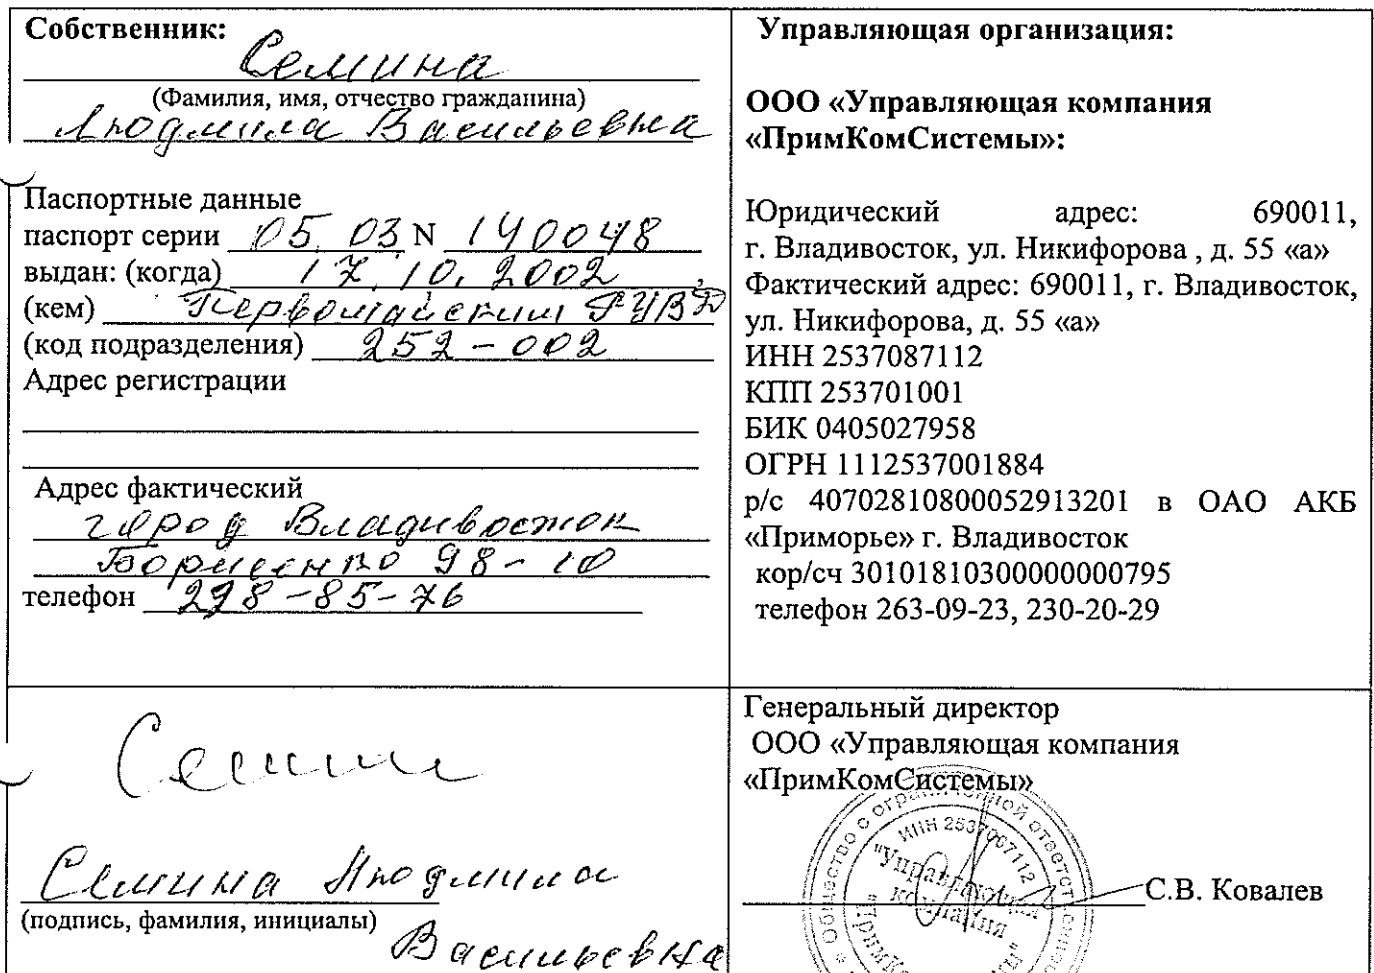 Собственник:
Семина
(Фамилия, имя, отчество гражданина)
Людмила Васильевна
Паспортные данные
паспорт серии 05 03 N 140048
выдан: (когда) 17.10.2002
(кем) Первомайским РУВД
(код подразделения) 252-002
Адрес регистрации
Адрес фактический
город Владивосток
Борисенко 98-10
телефон 298-85-76
Управляющая организация:
ООО «Управляющая компания
«ПримКомСистемы»:
Юридический адрес: 690011,
г. Владивосток, ул. Никифорова , д. 55 «а»
Фактический адрес: 690011, г. Владивосток,
ул. Никифорова, д. 55 «а»
ИНН 2537087112
КПП 253701001
БИК 0405027958
ОГРН 1112537001884
р/с 40702810800052913201 в ОАО АКБ
«Приморье» г. Владивосток
кор/сч 30101810300000000795
телефон 263-09-23, 230-20-29
Семина Людмила
(подпись, фамилия, инициалы)
Васильевна
Генеральный директор
ООО «Управляющая компания
«ПримКомСистемы»
С.В. Ковалев
Общество с ограниченной
"Управляющая
компания